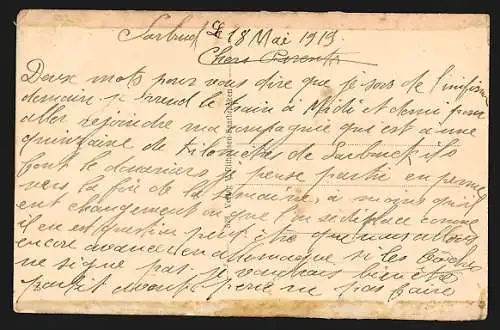 Sarbruck Le 18 Mai 1919.
Chers Parents
Deux mots pour vous dire que je sors de l'infirm
demain. je prend le train à Midi et demi pour
aller rejoindre ma compagnie qui est à une
quinzaine de Kilomètres de Sarbruck ils
font le douaniers, je pense partir en perme
vers la fin de la semaine, à moins qu'il
ent changement ou que l'on se déplace comme
il en est question peut être que nous allons
encore avancer en allemagne si les boches
ne signe pas, je voudrais bien être
partit avant pour ne pas faire